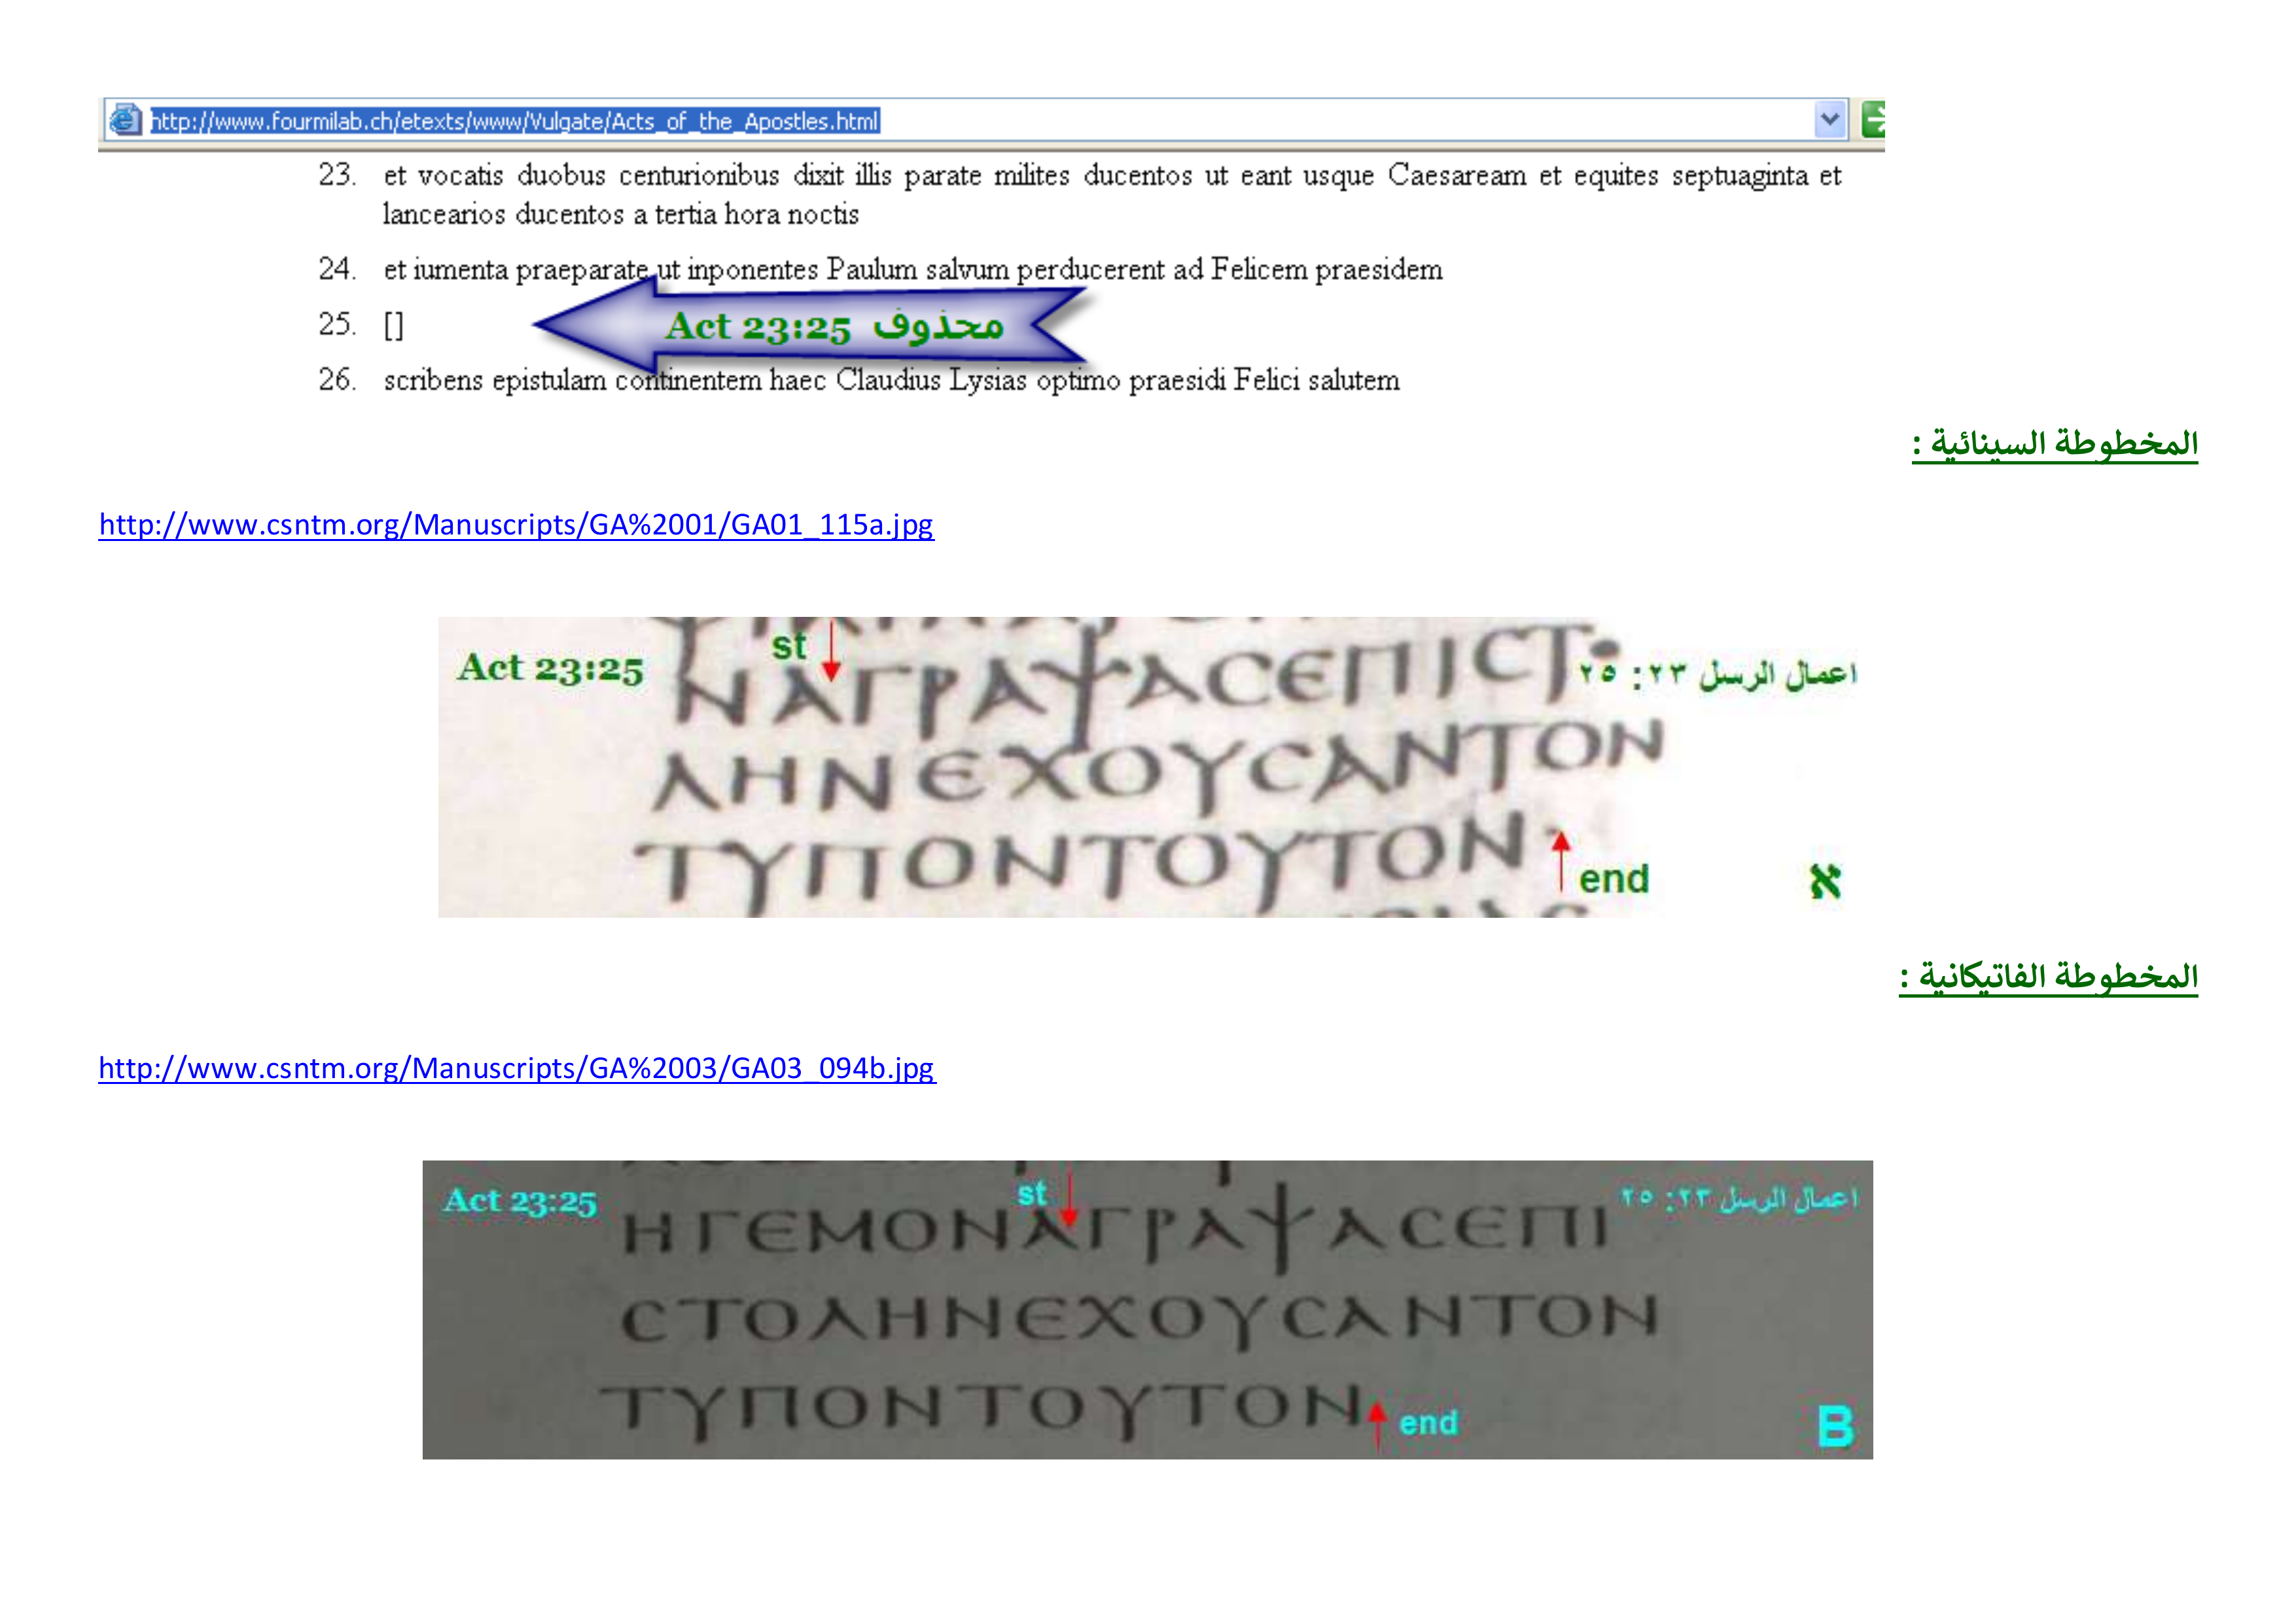 http://www.fourmilab.ch/etexts/www/Vulgate/Acts_of_the_Apostles.html
23. et vocatis duobus centurionibus dixit illis parate milites ducentos ut eant usque Caesaream et equites septuaginta et
lancearios ducentos a tertia hora noctis
24. et iumenta praeparate ut inponentes Paulum salvum perducerent ad Felicem praesidem
25. []
Act 23:25 محذوف
26. scribens epistulam continentem haec Claudius Lysias optimo praesidi Felici salutem
المخطوطة السينائية :
http://www.csntm.org/Manuscripts/GA%2001/GA01_115a.jpg
Act 23:25
st
اعمال الرسل ٢٣: ٢٥
ΝΑΓΡΑΨΑϹΕΠΙϹΤ
ΛΗΝΕΧΟΥϹΑΝΤΟΝ
ΤΥΠΟΝΤΟΥΤΟΝ
end
א
المخطوطة الفاتيكانية :
http://www.csntm.org/Manuscripts/GA%2003/GA03_094b.jpg
Act 23:25
st
اعمال الرسل ٢٣: ٢٥
ΗΓΕΜΟΝΑΓΡΑΨΑϹΕΠΙ
ϹΤΟΛΗΝΕΧΟΥϹΑΝΤΟΝ
ΤΥΠΟΝΤΟΥΤΟΝ
end
B